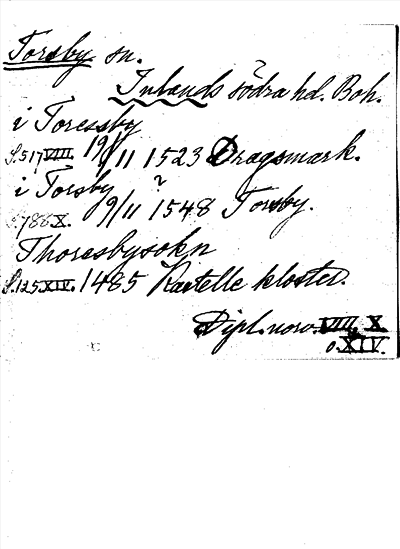 Torsby sn.
Inlands södra hd. Boh.
i Toressby
S.517 VIII. 19/11 1523 Dragsmark.
i Torsby ?
S.788 X. 9/11 1548 Torsby.
Thoresbysokn
S.125 XIV. 1485 Kastelle kloster.
Dipl. norv. VIII, X
o. XIV.